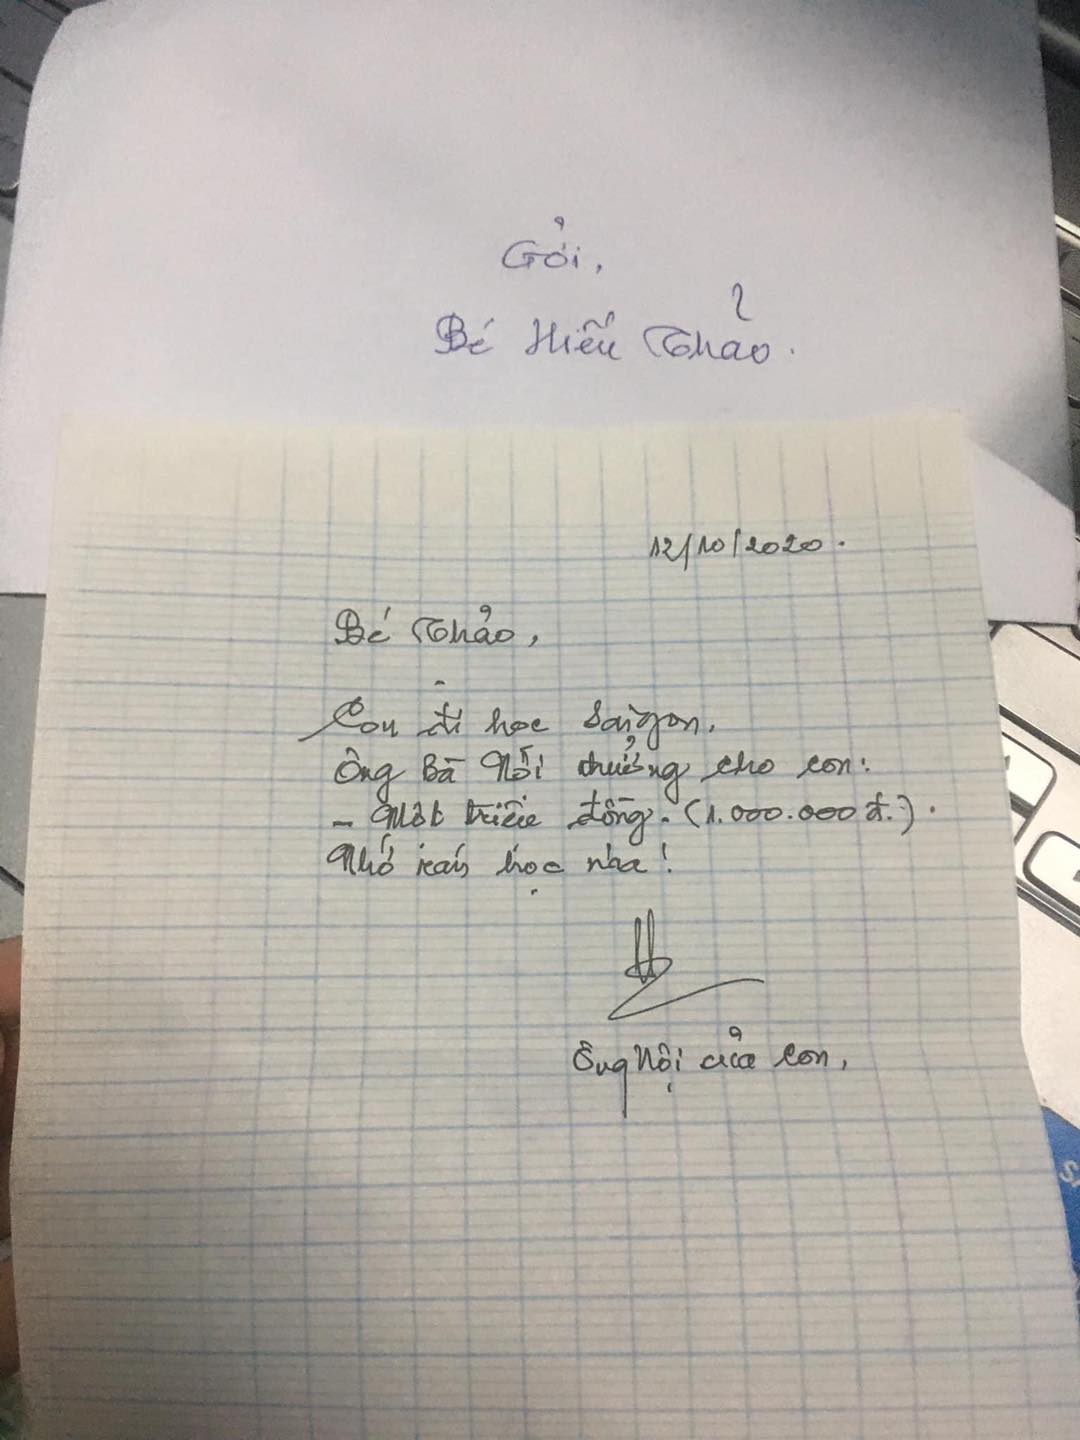 Gởi,
Bé Hiếu Thảo.
12/10/2020.
Bé Thảo,
Con đi học Saigon,
Ông Bà Nội thưởng cho con:
- Một triệu đồng. (1.000.000đ.).
Nhớ ráng học nha!
Ông Nội của con,